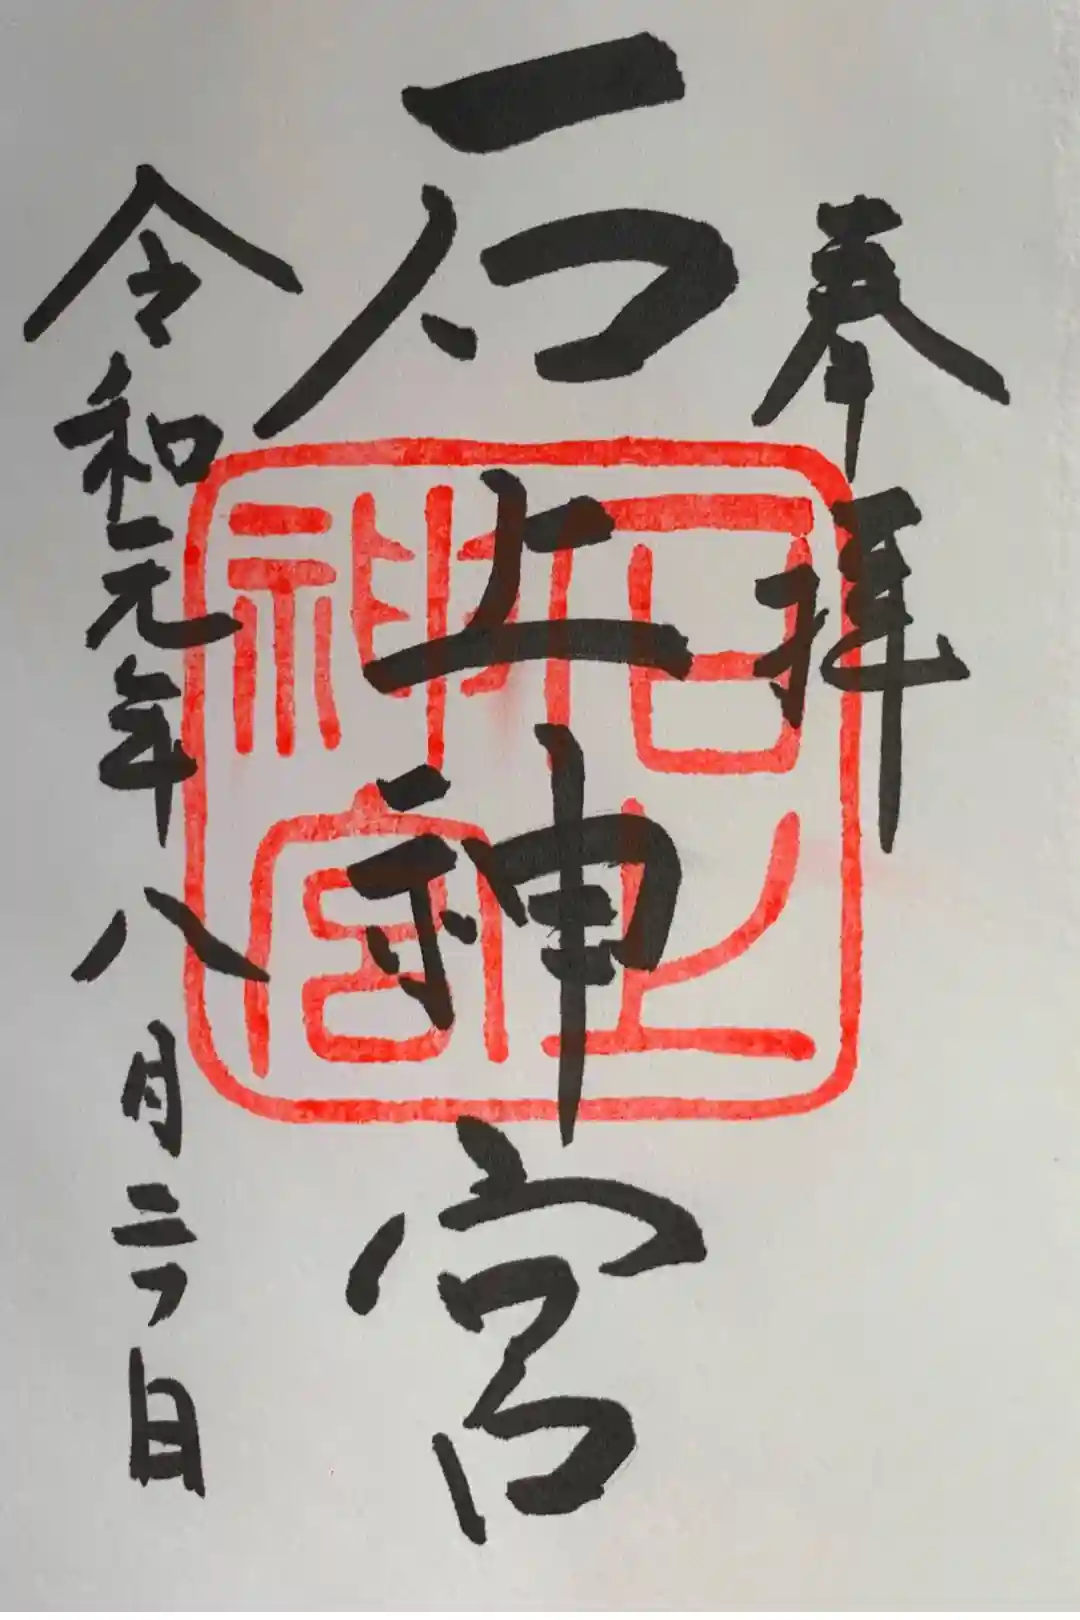 奉拝
石上神宮
石上
神宮
令和元年八月日